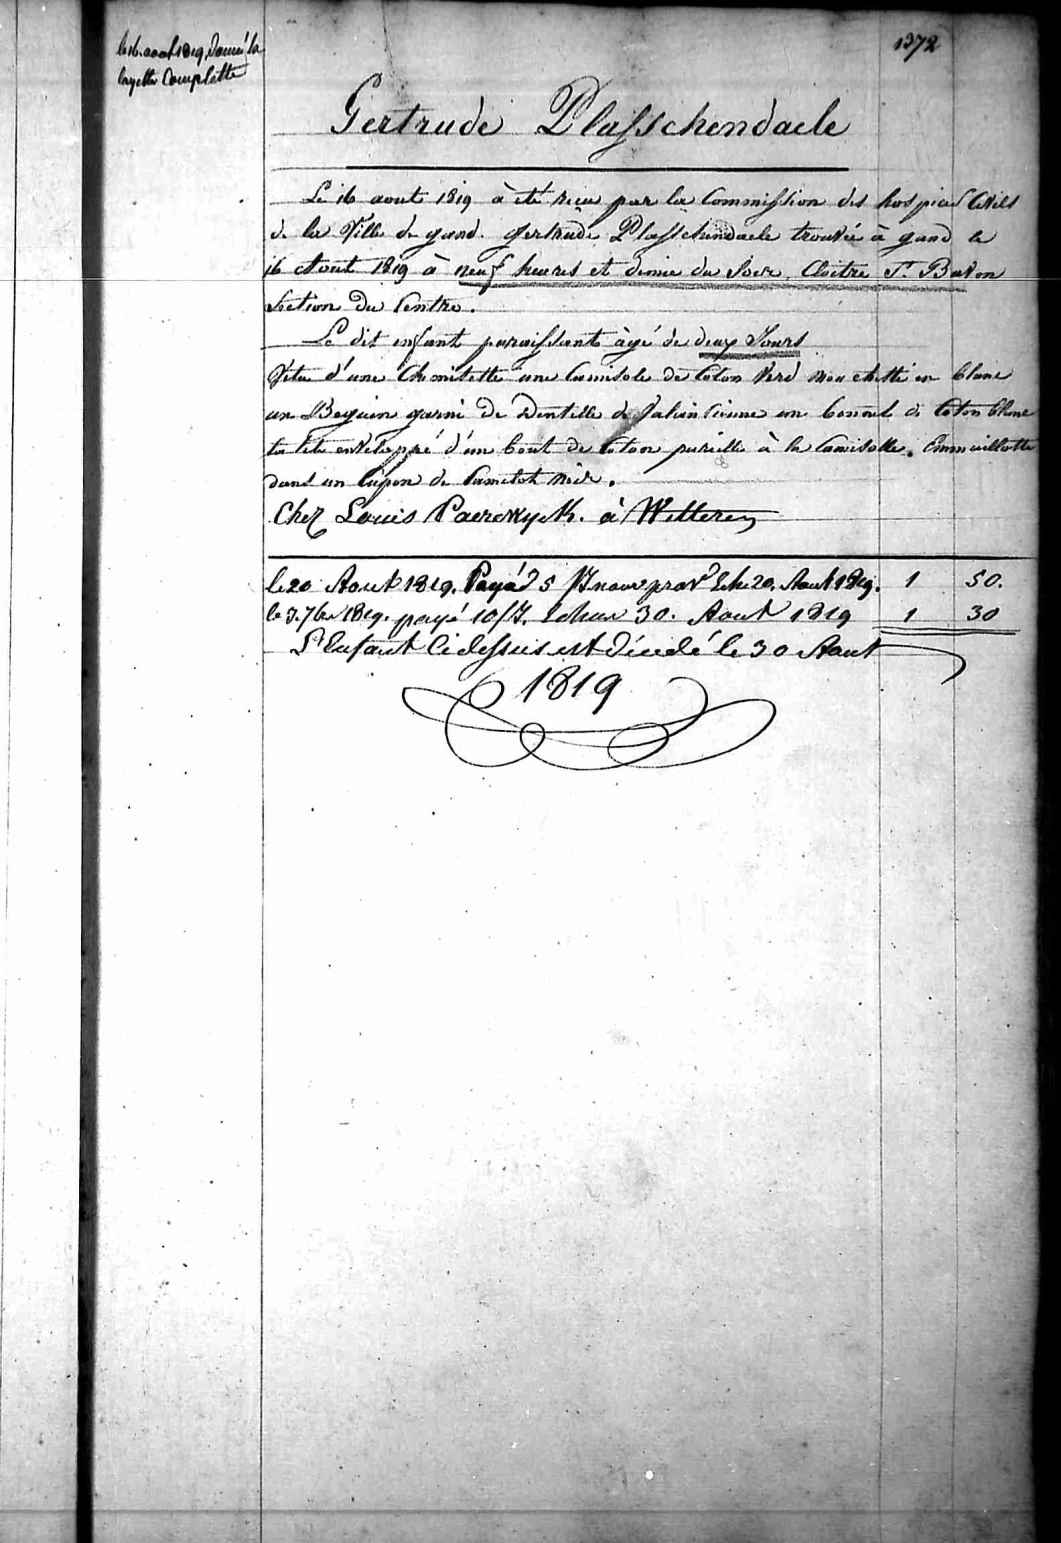 1372
le 16. aout 1819, donné la
layette Complette
Gertrude Plasschendaele
Le 16 aout 1819 à été recue par la Commission des hospices Civils
de la Ville de gand. Gertrude Plasschendaele trouvée à gand le
16 Aout 1819 à neuf heures et demie du Soir, Cloitre St. Bavon
Section du Centre.
Le dit enfant paraissant àgé de deux Jours
Vetu d'une Chemisette une Camisole de Coton Verd mouchettée en blanc
un Beguin garni de Dentelle de Valencienne un bonnet de Coton blanc
la tete enveloppé d'un bout de Coton pareille à la Camisolle. Emmaillotté
dans un Lupon de Camelot noir.
Chez Louis Paerewyck. à Wetteren
le 20 Aout 1819. Payé 5 20. Aout 1819. 1 50.
le 3. 7bre 1819. payé 10 30. Aout 1819 1 30
L'Enfant Cidessus est décedé le 30 Aout
1819